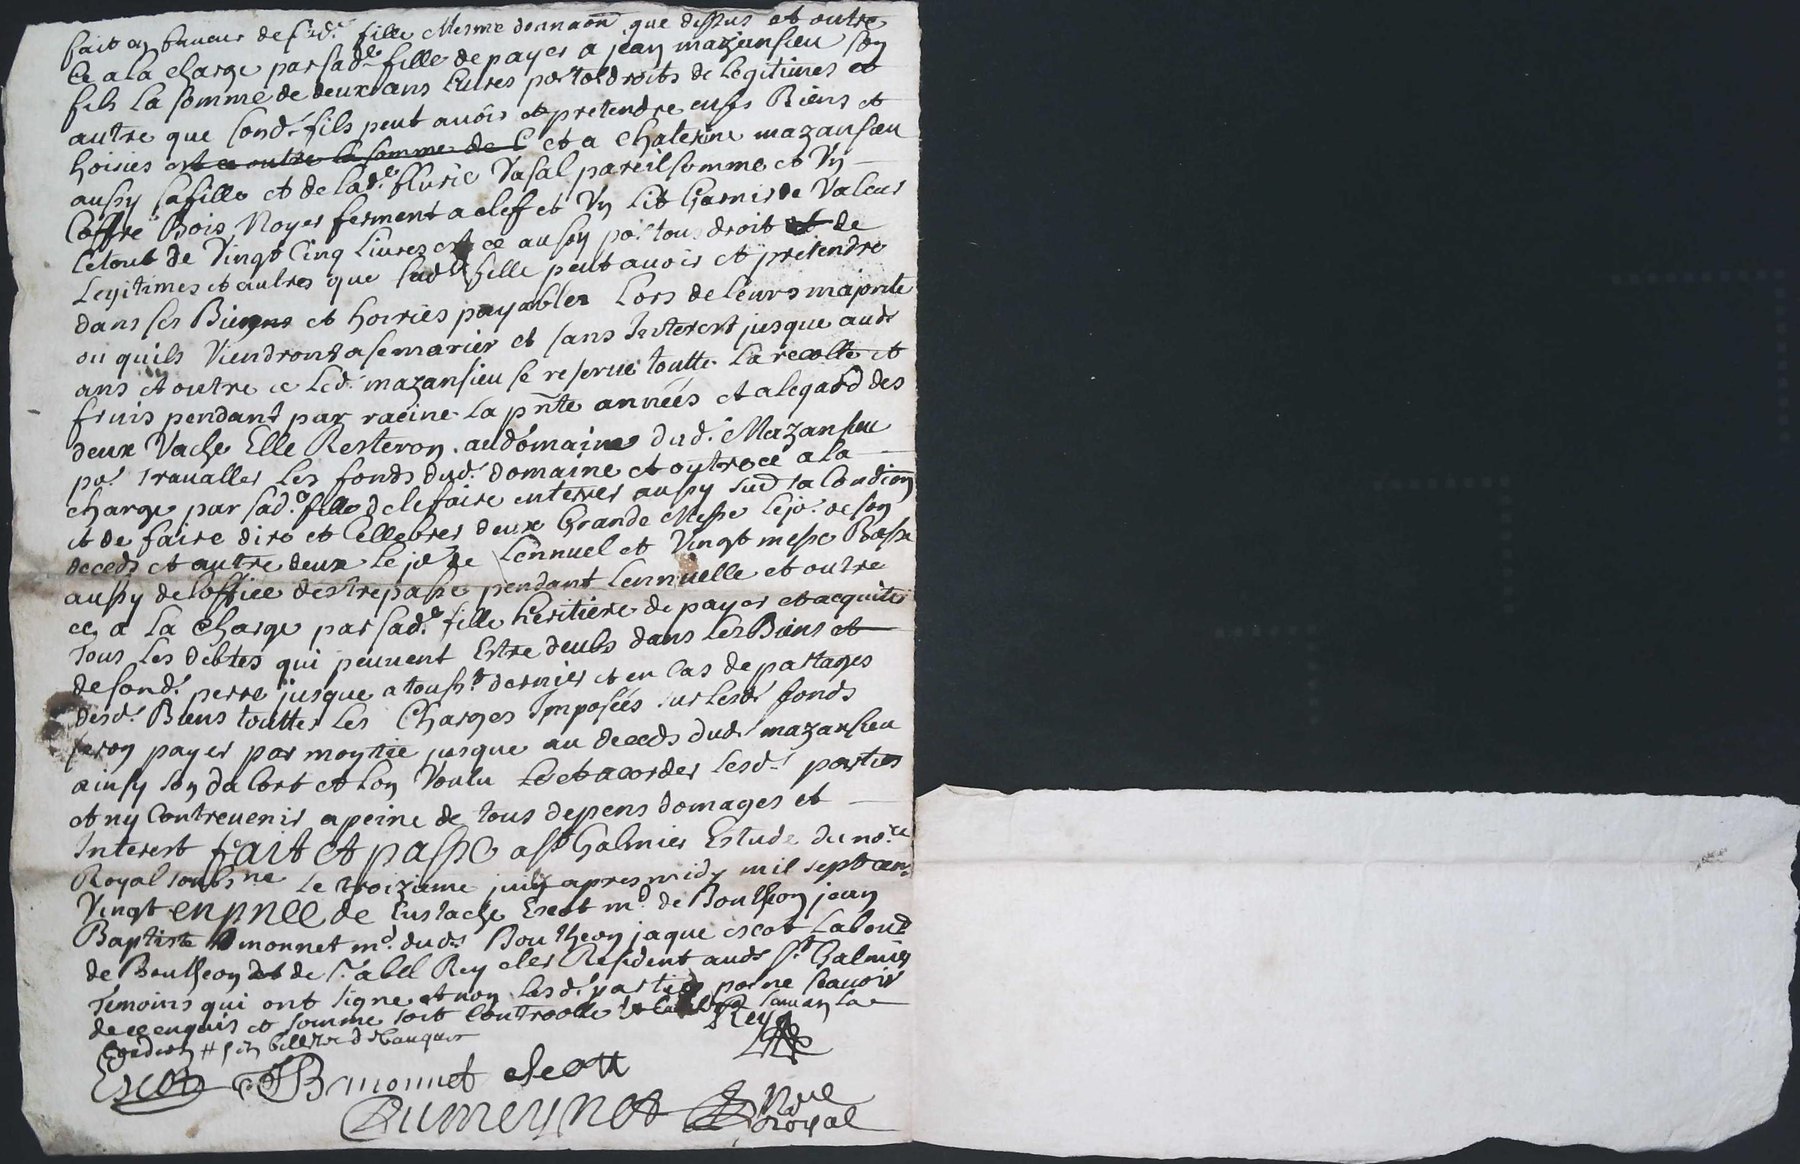 fait en faueur de sad. fille Mesme donnaon que dessus et outre
Ce a la charge par sad. fille de payer a jean mazansieu son
fils La somme de deux cans Liures por tol droits de Legitimes et
autre que sond. fils peut auoir et pretendre en ses Biens et
hoiries et ce outre la somme de C et a Chaterine mazansieu
aussy sa fille et de lad. flurie Vasal pareil somme et Vn
Coffre Bois Noyer ferment a clef et Vn Lit Garnis de Valeur
Le tout de Vingt Cinq Liures et ce aussy por tous droit et de
Legitimes et autres que sad. fille peut auoir et pretendre
dans ses Biens et hoiries payables Lors de Leurs majorite
ou quils Viendront a se marier et sans Interest jusque aud.
ans et outre ce Led. mazansieu se reserue toutte La recolte et
fruis pendant par racine La pnte années et a legard des
deux Vache Elle Resteron au domaine dud. Mazansieu
por. traualler Les fonds dud. domaine et oytre ce a la
charge par sad. fille de le faire enterrer aussy sud sa Condicion
et de faire dire et Cellebrer deux Grande Messe Le jo. de son
deceds et autre deux Le jo de Lennuel et Vingt messe Basse
aussy de loffice des trepasse pendant Lennuelle et outre
ce a La Charge par sad. fille heritiere de payer et acquiter
Tous Les debtes qui peuuent Estre deubs dans Les Biens et
de sond. perre jusque a touss.t dernier et en Cas de partages
desd. Biens touttes Les Charges Imposées sur Lesd. fonds
seron payer par moytie jusque au deceds dud. mazansieu
ainsy Lon dacort et Lon Voulu et acorder Lesd. parties
et ny Contreuenir a peine de tous depens domages et
Interest fait et passe a St Galmier Estude du no.re
Royal soubs.ne Le troizieme juin apres midy mil sept cen
Vingt en pnce de Eustache Escot m.d de Boutheon jean
Baptiste monnet m.d dud. Boutheon jaque escot Labour
de Boutheon et de s. abel Rey cler Resident aud. St Galmier
Temoins qui ont signe et non Lesd. parties por ne scauoir
de ce enquis et somme soit Controolle
Escot JB monnet escott Rey
Dumeynet Nre
Royal